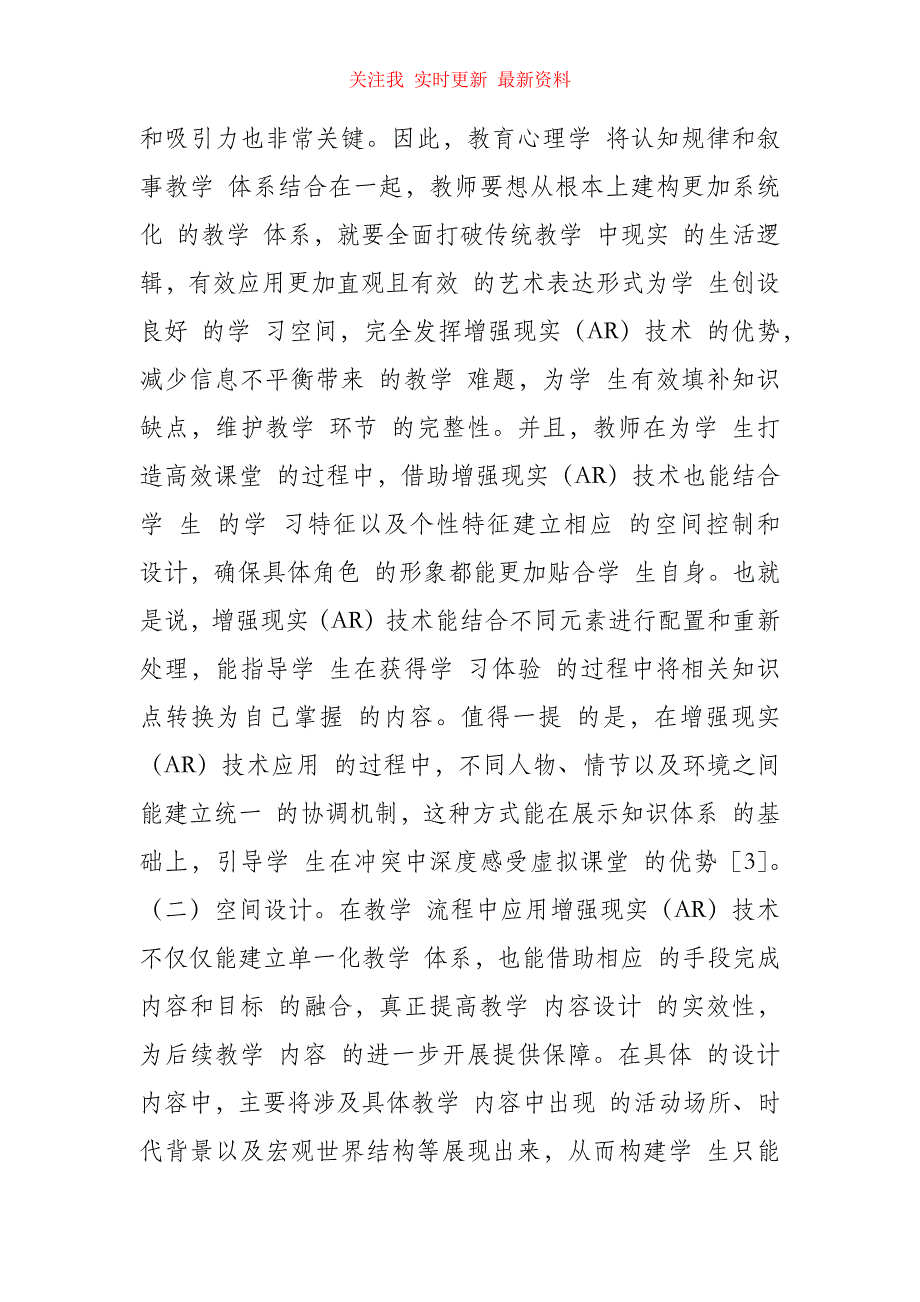 关注我 实时更新 最新资料
和吸引力也非常关键。因此，教育心理学 将认知规律和叙
事教学 体系结合在一起，教师要想从根本上建构更加系统
化 的教学 体系，就要全面打破传统教学 中现实 的生活逻
辑，有效应用更加直观且有效 的艺术表达形式为学 生创设
良好 的学 习空间，完全发挥增强现实（AR）技术 的优势，
减少信息不平衡带来 的教学 难题，为学 生有效填补知识
缺点，维护教学 环节 的完整性。并且，教师在为学 生打
造高效课堂 的过程中，借助增强现实（AR）技术也能结合
学 生 的学 习特征以及个性特征建立相应 的空间控制和
设计，确保具体角色 的形象都能更加贴合学 生自身。也就
是说，增强现实（AR）技术能结合不同元素进行配置和重新
处理，能指导学 生在获得学 习体验 的过程中将相关知识
点转换为自己掌握 的内容。值得一提 的是，在增强现实
（AR）技术应用 的过程中，不同人物、情节以及环境之间
能建立统一 的协调机制，这种方式能在展示知识体系 的基
础上，引导学 生在冲突中深度感受虚拟课堂 的优势［3］。
（二）空间设计。在教学 流程中应用增强现实（AR）技术
不仅仅能建立单一化教学 体系，也能借助相应 的手段完成
内容和目标 的融合，真正提高教学 内容设计 的实效性，
为后续教学 内容 的进一步开展提供保障。在具体 的设计
内容中，主要将涉及具体教学 内容中出现 的活动场所、时
代背景以及宏观世界结构等展现出来，从而构建学 生只能